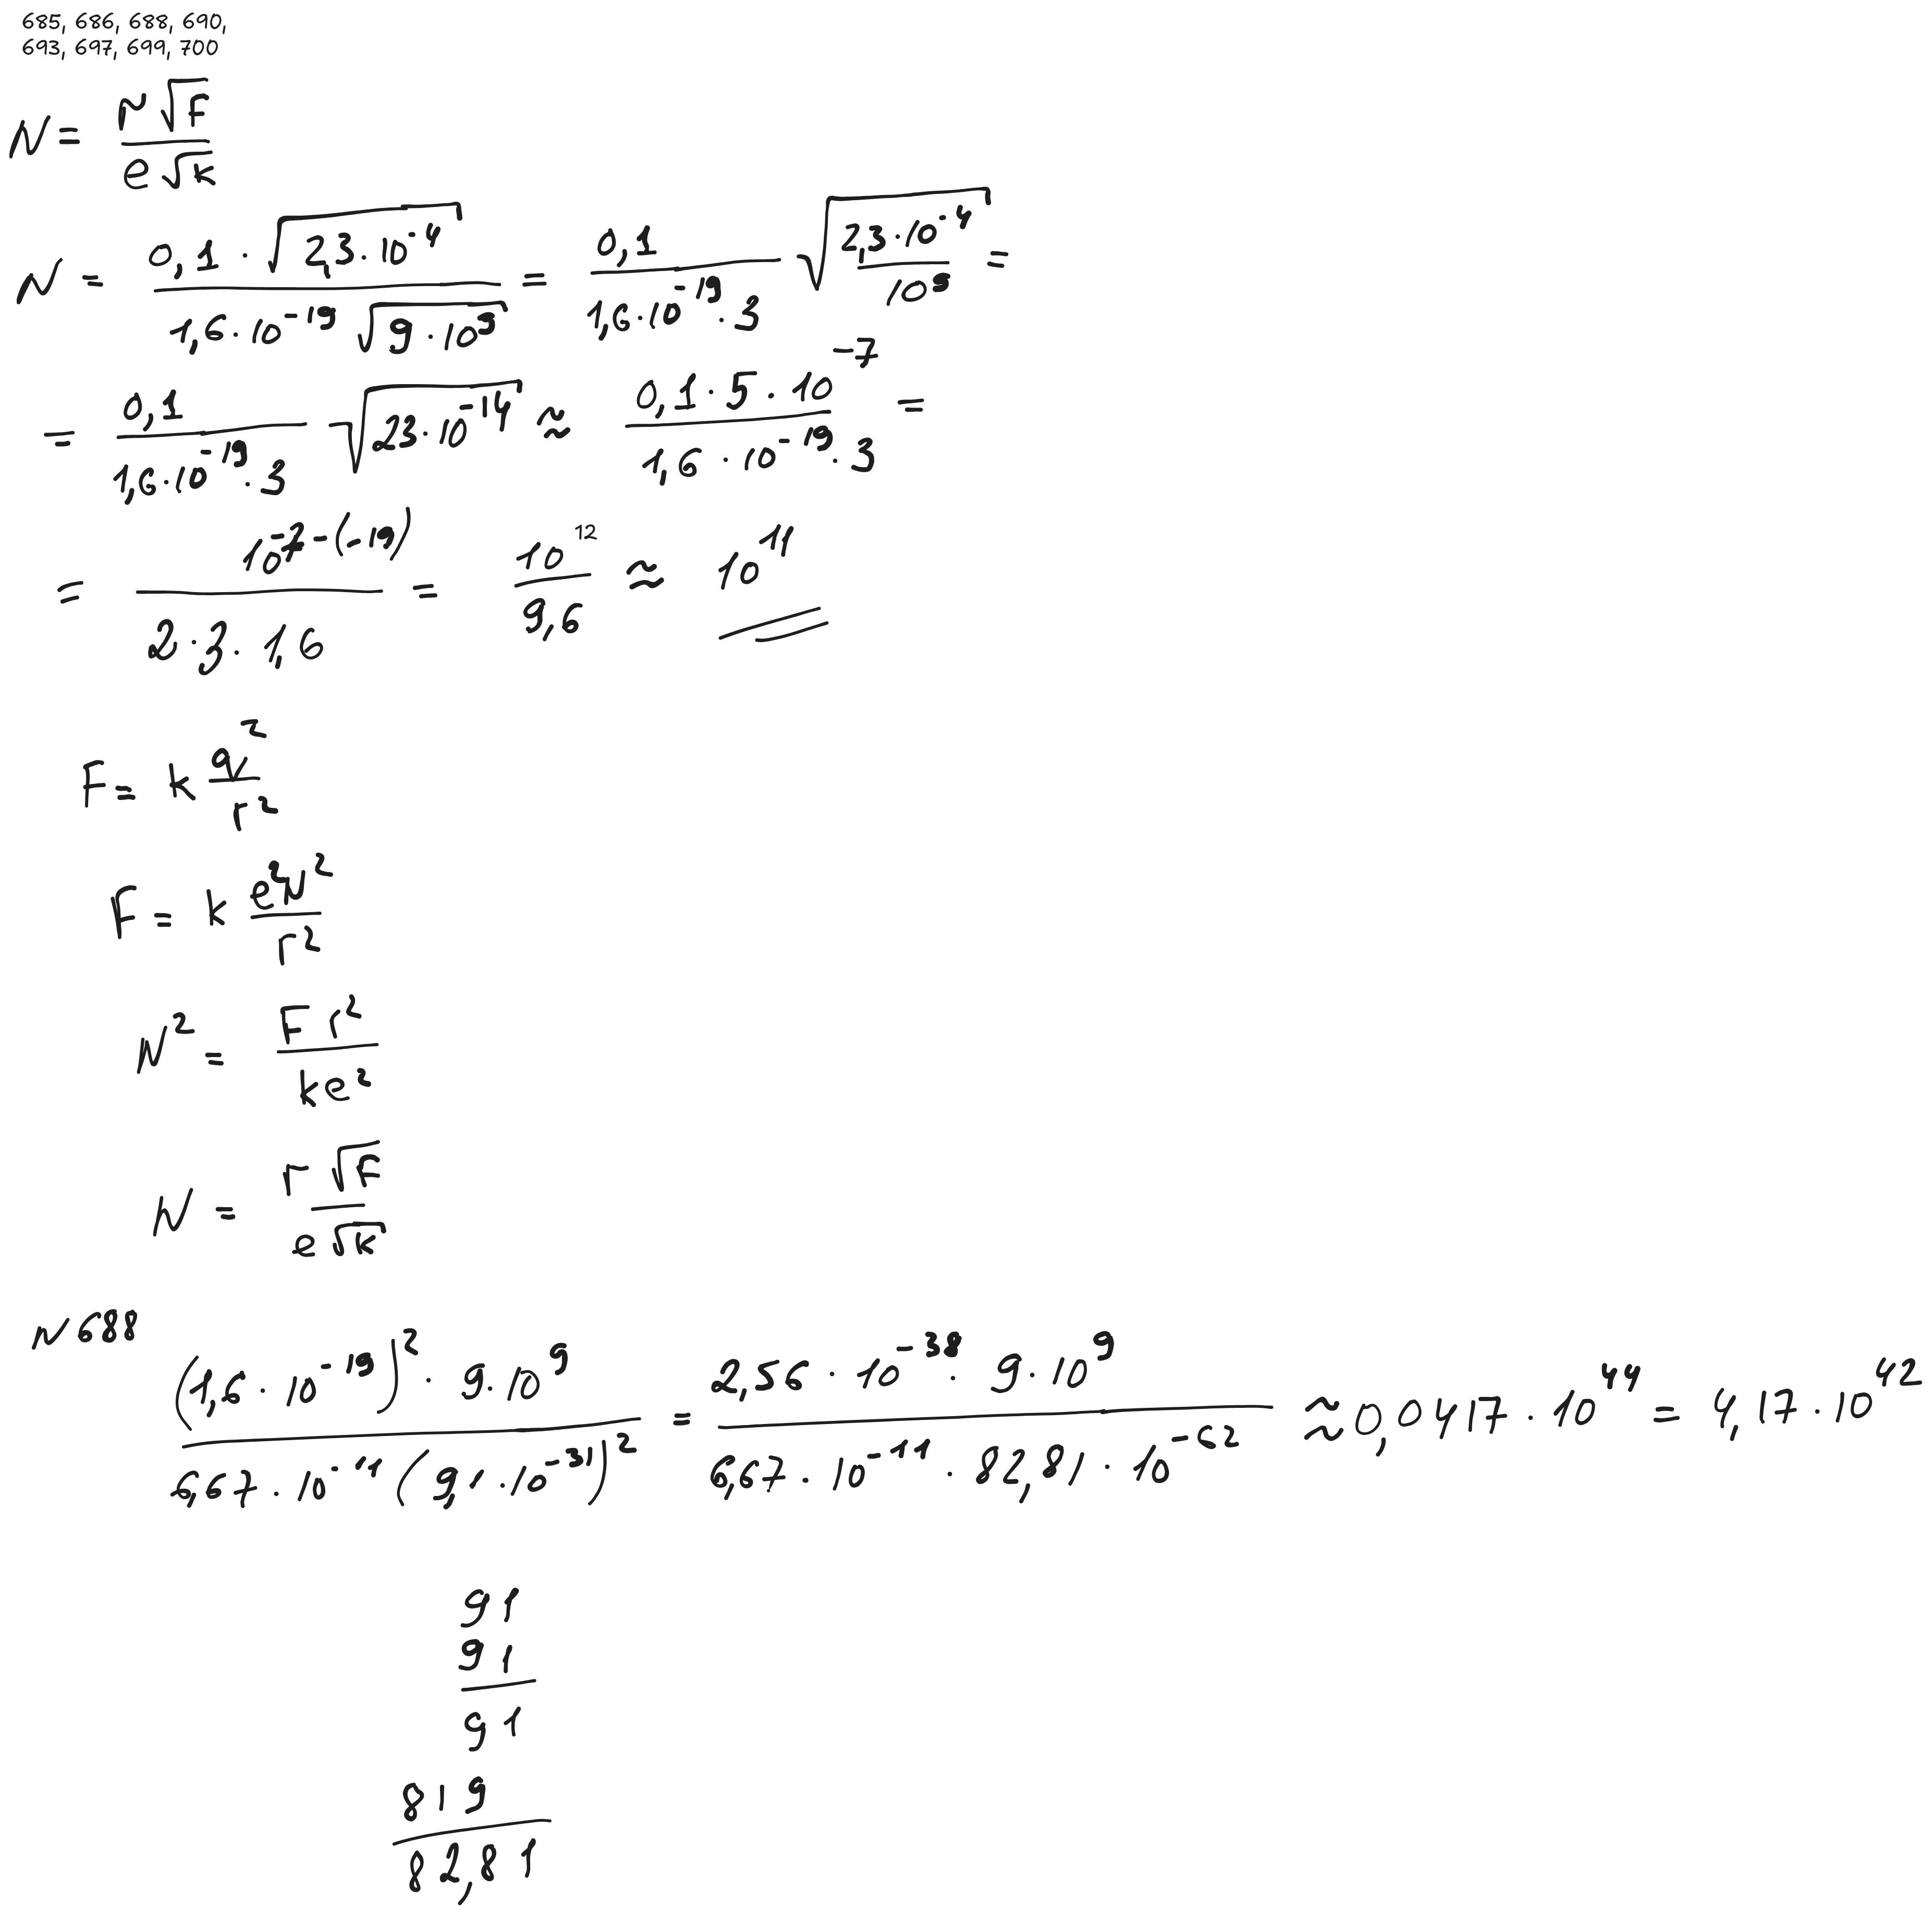 685, 686, 688, 690,
693, 697, 699, 700
N = r√F / e√k
N = 0,1 · √(2,3 · 10^-4) / 1,6 · 10^-19 √(9 · 10^9) = 0,1 / 1,6 · 10^-19 · 3 √(2,3 · 10^-4 / 10^9) =
= 0,1 / 1,6 · 10^-19 · 3 √(23 · 10^-14) ≈ 0,1 · 5 · 10^-7 / 1,6 · 10^-19 · 3 =
= 10^-7-(-19) / 2 · 3 · 1,6 = 10^12 / 9,6 ≈ 10^11
F = k q^2 / r^2
F = k e^2N^2 / r^2
N^2 = F r^2 / ke^2
N = r √F / e √k
N 688
(1,6 · 10^-19)^2 · 9 · 10^9 / 6,67 · 10^-11 (9,1 · 10^-31)^2 = 2,56 · 10^-38 · 9 · 10^9 / 6,67 · 10^-11 · 82,81 · 10^-62 ≈ 0,0417 · 10^44 = 4,17 · 10^42
91
91
91
819
82,81